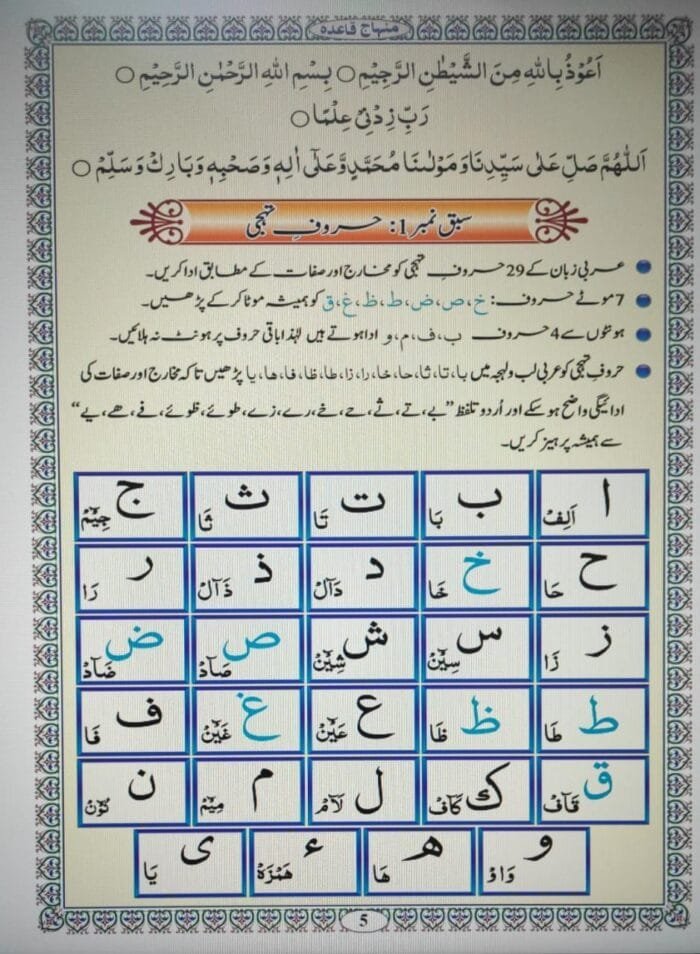 منہاج قاعدہ
اَعُوْذُ بِاللّٰهِ مِنَ الشَّيْطٰنِ الرَّجِيْمِ ○ بِسْمِ اللّٰهِ الرَّحْمٰنِ الرَّحِيْمِ ○
رَبِّ زِدْنِيْ عِلْمًا ○
اَللّٰهُمَّ صَلِّ عَلٰى سَيِّدِنَا وَمَوْلٰىنَا مُحَمَّدٍ وَّعَلٰٓى اٰلِهٖ وَصَحْبِهٖ وَبَارِكْ وَسَلِّمْ ○
سبق نمبر 1: حروفِ تہجی
عربی زبان کے 29 حروفِ تہجی کو مخارج اور صفات کے مطابق ادا کریں۔
7 موٹے حروف: خ، ص، ض، ط، ظ، غ، ق کو ہمیشہ موٹا کر کے پڑھیں۔
ہونٹوں سے 4 حروف ب، ف، م، و ادا ہوتے ہیں لہٰذا باقی حروف پر ہونٹ نہ ہلائیں۔
حروفِ تہجی کو عربی لب و لہجہ میں با، تا، ثا، حا، خا، را، زا، طا، ظا، فا، ها، یا پڑھیں تاکہ مخارج اور صفات کی
ادائیگی واضح ہو سکے اور اُردو تلفظ ”بے، تے، ثے، حے، خے، رے، زے، طوئے، ظوئے، فے، ھے، یے“
سے ہمیشہ پرہیز کریں۔
ا اَلِفْ ب بَا ت تَا ث ثَا ج جِيْمْ
ح حَا خ خَا د دَآلْ ذ ذَآلْ ر رَا
ز زَا س سِيْنْ ش شِيْنْ ص صَآدْ ض ضَآدْ
ط طَا ظ ظَا ع عَيْنْ غ غَيْنْ ف فَا
ق قَآفْ ك كَآفْ ل لَآمْ م مِيْمْ ن نُوْنْ
و وَاوْ ھ ھَا ء هَمْزَهْ ی يَا
5